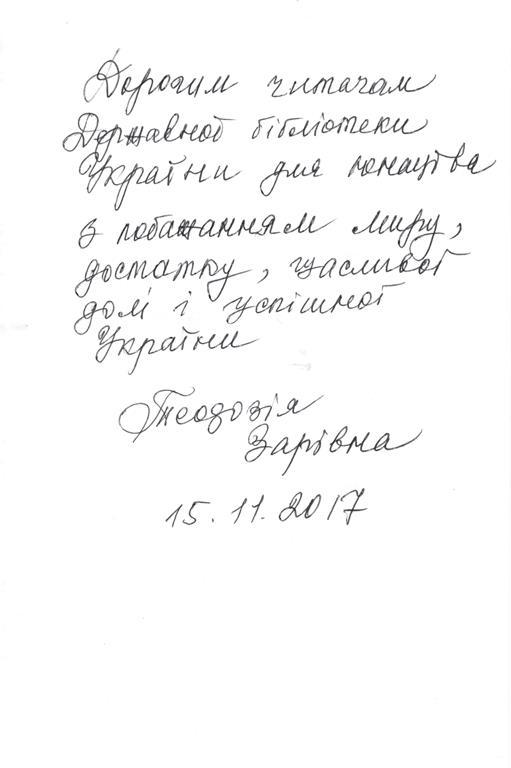 Дорогим читачам
Державної бібліотеки
України для юнацтва
з побажанням миру,
достатку, щасливої
долі і успішної
України
Теодозія
Зарівна
15.11.2017